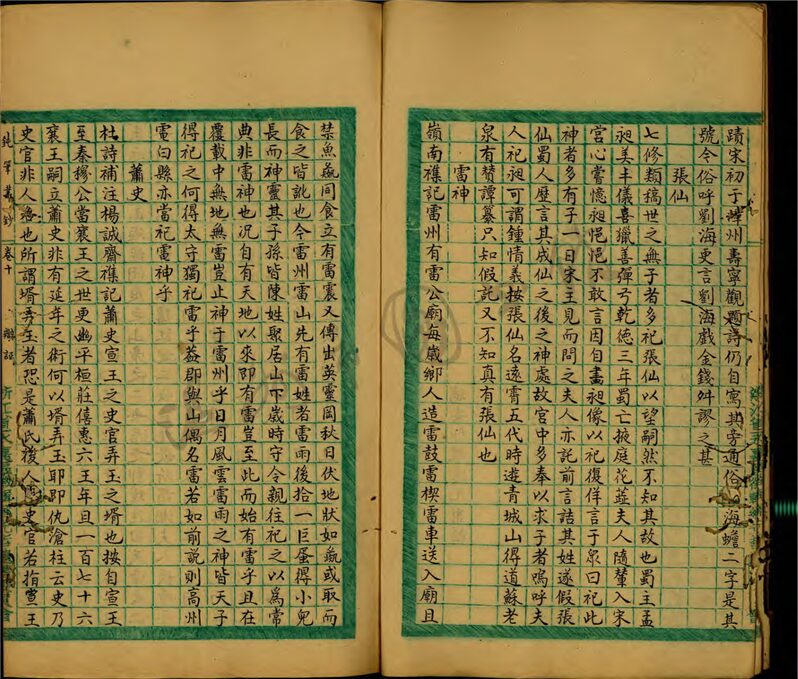 蹟宋初于㵎州壽寧觀題詩仍自寫其旁通俗海蟾二字是其
號今俗呼劉海史言劉海戲金錢舛謬之甚
張仙
七修類稿世之無子者多祀張仙以望嗣然不知其故也蜀主孟
昶美丰儀喜獵善彈弓乾德三年蜀亡掖庭花蕊夫人隨輦入宋
宮心嘗憶昶悒悒不敢言因自畫昶像以祀復佯言于衆曰祀此
神者多有子一日宋主見而問之夫人亦託前言詰其姓遂假張
仙蜀人歷言其成仙之後之神處故宮中多奉以求子者嗚呼夫
人祀昶可謂鍾情義按張仙名遠霄五代時遊青城山得道蘇老
泉有贊譚纂只知假託又不知真有張仙也
雷神
嶺南襍記雷州有雷公廟每歲鄉人造雷鼓雷楔雷車送入廟且
禁魚彘同食立有雷震又傳出英靈岡秋日伏地狀如彘或取而
食之皆訛也今雷州雷山先有雷姓者雷雨後拾一巨蛋得小兒
長而神靈其子孫皆陳姓聚居山下歲時守令親往祀之以爲常
典非雷神也况自有天地以來即有雷豈至此而始有雷乎且在
覆載中無地無雷豈止神于雷州乎日月風雲雷雨之神皆天子
得祀之何得太守獨祀雷乎葢郡與山偶名雷若如前說則高州
電白縣亦當祀電神乎
蕭史
杜詩補注楊誠齋襍記蕭史宣王之史官弄玉之壻也按自宣王
至秦穆公當襄王之世更幽平桓莊僖惠六王年且一百七十六
襄王嗣立蕭史非有延年之術何以壻弄玉耶即仇滄柱云史乃
史官非人名也所謂壻弄玉者恐是蕭氏後人史官若指宣王
鈍筆叢鈔 卷十 辨証